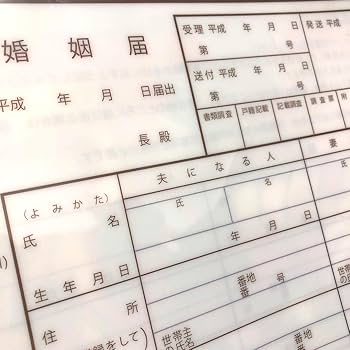 婚姻届
平成 年 月 日届出
長殿
受理 平成 年 月 日
第 号
発送 平
送付 平成 年 月 日
第 号
書類調査 戸籍記載 記載調査 調査票 附
夫になる人 妻
(よみかた) 氏 名 氏
氏名
生年月日 年 月 日
住所 番地 号
番
(
録をして)
世帯主
の氏名
世帯
の氏